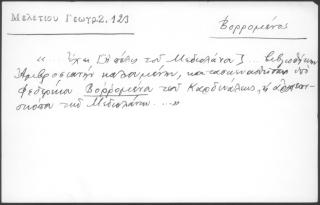 Μελετίου Γεωγρ. 123
Βορρομένος
« Ἔχει [ἡ πόλις τοῦ Μεδιολάνου] βιβλιοθήκην
Ἀμβροσιανήν καλουμένην, κατασκευασθεῖσαν ὑπό
Φεδερίκου Βορρομένου τοῦ Καρδινάλεως, ἀρχιεπι-
σκόπου τοῦ Μεδιολάνου. ...»